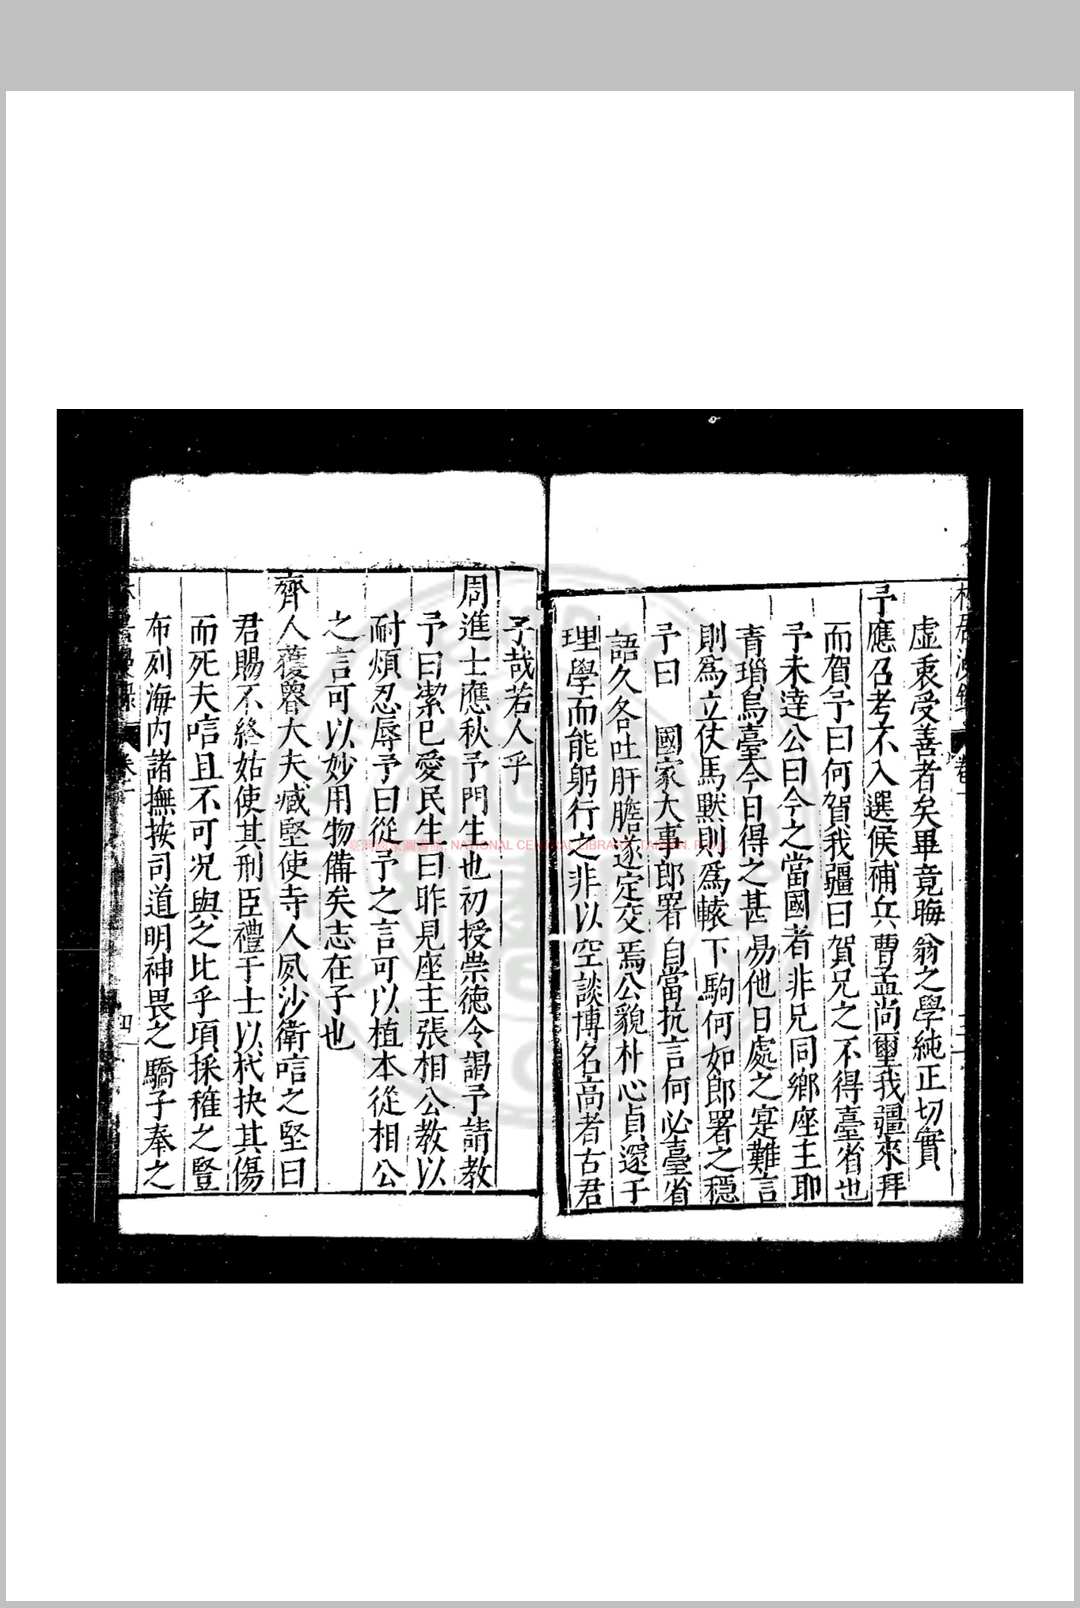 虛秉受善者矣畢竟晦翁之學純正切實
予應召考不入選候補兵曹孟尚璽我疆來拜
而賀予曰何賀我疆曰賀兄之不得臺省也
予未達公曰今之當國者非兄同鄉座主耶
青瑣烏臺今日得之甚易他日處之寔難言
則為立仗馬默則為轅下駒何如郎署之穩
予曰 國家大事郎署自當抗言何必臺省
語久各吐肝膽遂定交焉公貌朴心貞邃于
理學而能躬行之非以空談博名高者古君
子哉若人乎
周進士應秋予門生也初授崇德令謁予請教
予曰潔已愛民生曰昨見座主張相公教以
耐煩忍辱予曰從予之言可以植本從相公
之言可以妙用物備矣志在子也
齊人蔆大夫臧堅使寺人夙沙衛唁之堅曰
君賜不終姑使其刑臣禮于士以杙抉其傷
而死夫唁且不可况與之比乎項採稚之豎
布列海內諸撫按司道明神畏之驕子奉之
卷一
四
NATIONAL CENTRAL LIBRARY, TAIWAN, R.O.C.